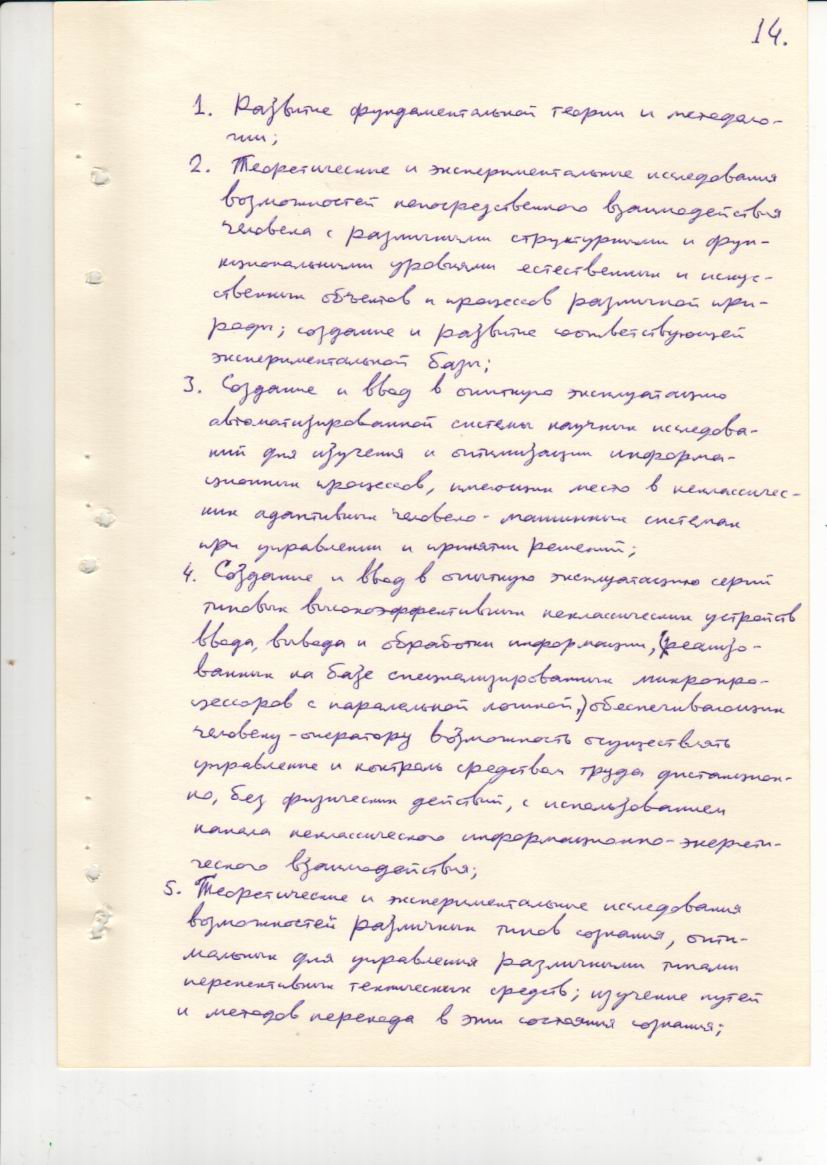 14.
1. Развитие фундаментальной теории и методоло-
гии;
2. Теоретические и экспериментальные исследования
возможностей непосредственного взаимодействия
человека с различными структурными и фун-
кциональными уровнями естественных и искус-
ственных объектов и процессов различной при-
роды; создание и развитие соответствующей
экспериментальной базы;
3. Создание и ввод в опытную эксплуатацию
автоматизированной системы научных исследова-
ний для изучения и оптимизации информа-
ционных процессов, имеющих место в неклассичес-
ких адаптивных человеко-машинных системах
при управлении и принятии решений;
4. Создание и ввод в опытную эксплуатацию серий
типовых высокоэффективных неклассических устройств
ввода, вывода и обработки информации, (реализо-
ванных на базе специализированных микропро-
цессоров с паралельной логикой,) обеспечивающих
человеку-оператору возможность осуществлять
управление и контроль средствам труда дистанцион-
но, без физических действий, с использованием
канала неклассического информационно-энергети-
ческого взаимодействия;
5. Теоретические и экспериментальные исследования
возможностей различных типов сознания, опти-
мальных для управления различными типами
перспективных технических средств; изучение путей
и методов перехода в эти состояния сознания;